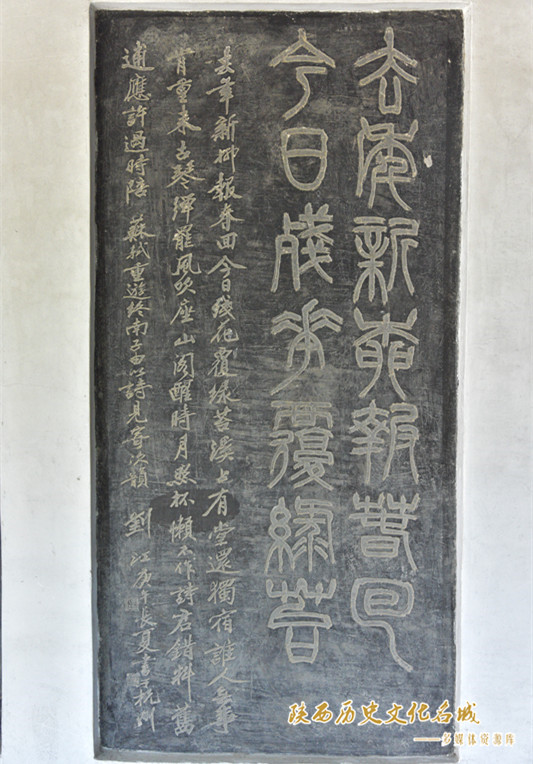 去年新柳報春回
今日殘花覆綠苔
去年新柳報春回今日残花覆綠苔溪上有堂還獨宿誰人無事
肯重來古琴彈罷風吹座山閣醒時月照杯懶不作詩君錯料舊
逋應許過時陪 蘇軾重遊終南子由以詩見寄次韻 劉江庚午長夏書於杭州
陕西历史文化名城
——多媒体资源库